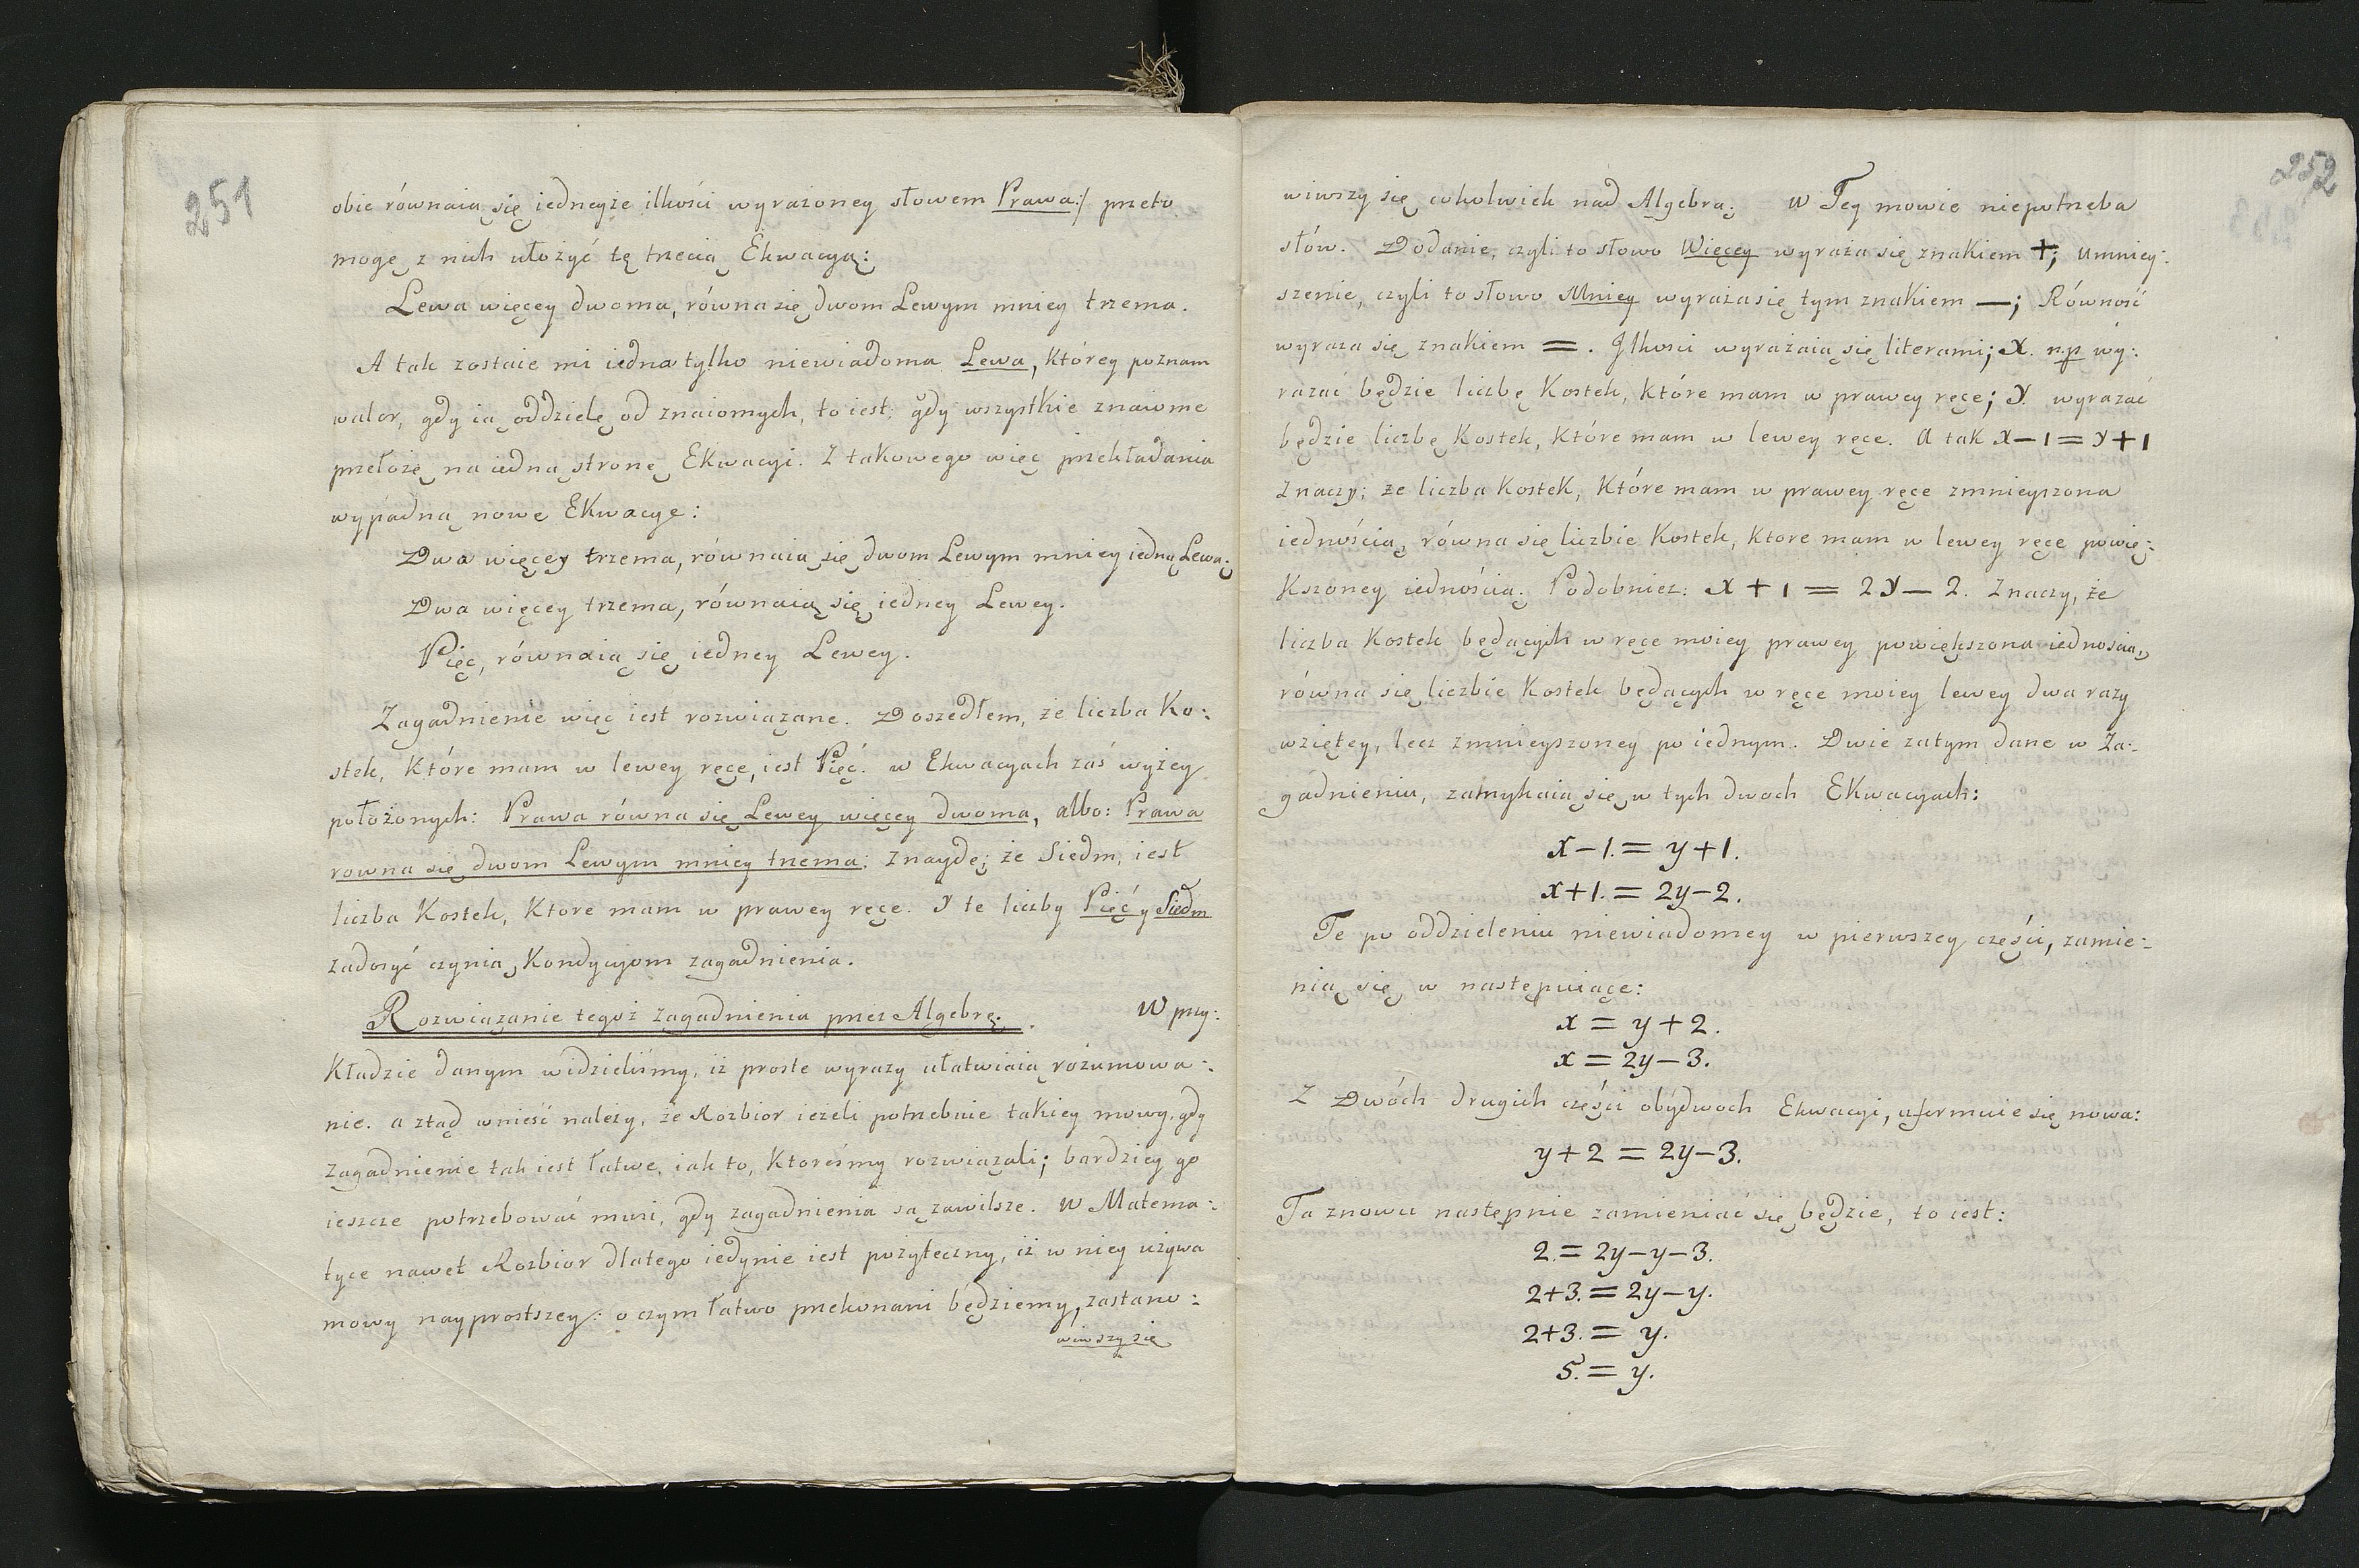 251
obie równaią się iedneyże ilkości wyrażoney słowem Prawa:/ przeto
mogę z nich ułożyć tę trzecią Ekwacyą:
Lewa więcey dwoma, równa się dwom Lewym mniey trzema.
A tak zostaie mi iedna tylko niewiadoma Lewa, którey poznam
walor, gdy ią oddzielę od znaiomych, to iest: gdy wszystkie znaiome
przełożę na iedną stronę Ekwacyi. Z takowego więc przekładania
wypadną nowe Ekwacye:
Dwa więcey trzema, równaią się dwom Lewym mniey iedną Lewą;
Dwa więcey trzema, równaią się iedney Lewey.
Pięć, równaią się iedney Lewey.
Zagadnienie więc iest rozwiązane. Doszedłem, że liczba Ko:
stek, które mam w lewey ręce, iest Pięć. w Ekwacyach zaś wyżey
położonych: Prawa równa się Lewey więcey dwoma, albo: Prawa
rowna się dwom Lewym mniey trzema: Znaydę; że Siedm, iest
liczba Kostek, Ktore mam w prawey ręce. Y te liczby Pięć y Siedm
zadosyć czynią Kondycyom zagadnienia.
Rozwiązanie tegoż zagadnienia przez Algebrę. W przy:
kładzie danym widzieliśmy, iż proste wyrazy ułatwiaią rozumowa:
nie. a ztąd wnieść należy, że Rozbior ieżeli potrzebuie takiey mowy, gdy
zagadnienie tak iest łatwe, iak to, ktoreśmy rozwiązali; bardziey go
ieszcze potrzebować musi, gdy zagadnienia są zawilsze. W Matema:
tyce nawet Rozbior dlatego iedynie iest pożyteczny, iż w niey używa
mowy nayprostszey: o czym łatwo przekonani będziemy, zastano:
wiwszy się
252
wiwszy się cokolwiek nad Algebrą. W Tey mowie niepotrzeba
słów. Dodanie, czyli to słowo Więcey wyraża się znakiem +; umniey:
szenie, czyli to słowo Mniey wyraża się tym znakiem —; Równość
wyraza się znakiem =. Jlkosci wyrażaią się literami; x. np wy:
razać będzie liczbę Kostek, które mam w prawey ręce; y. wyrazać
będzie liczbę Kostek, które mam w lewey ręce. A tak x—1=y+1
Znaczy; że liczba kostek, które mam w prawey ręce zmnieyszona
iednością, równa się liczbie Kostek, ktore mam w lewey ręce powię:
kszoney iednością. Podobniez: x + 1 = 2y — 2. Znaczy, że
liczba Kostek będących w ręce moiey prawey powiększona iednoscią,
równa się liczbie Kostek będących w ręce moiey lewey dwa razy
wziętey, lecz zmnieyszoney po iednym. Dwie zatym dane w Za:
gadnieniu, zamykaią się w tych dwoch Ekwacyach:
x—1.= y+1.
x+1.= 2y—2.
Te po oddzieleniu niewiadomey w pierwszey części, zamie:
nią się w następuiące:
x = y+2.
x = 2y—3.
Z Dwóch drugich części obydwoch Ekwacyi, uformuie się nowa:
y+2 = 2y—3.
Ta znowu następnie zamieniać się będzie, to iest:
2.= 2y—y—3.
2+3.= 2y—y.
2+3.= y.
5.= y.